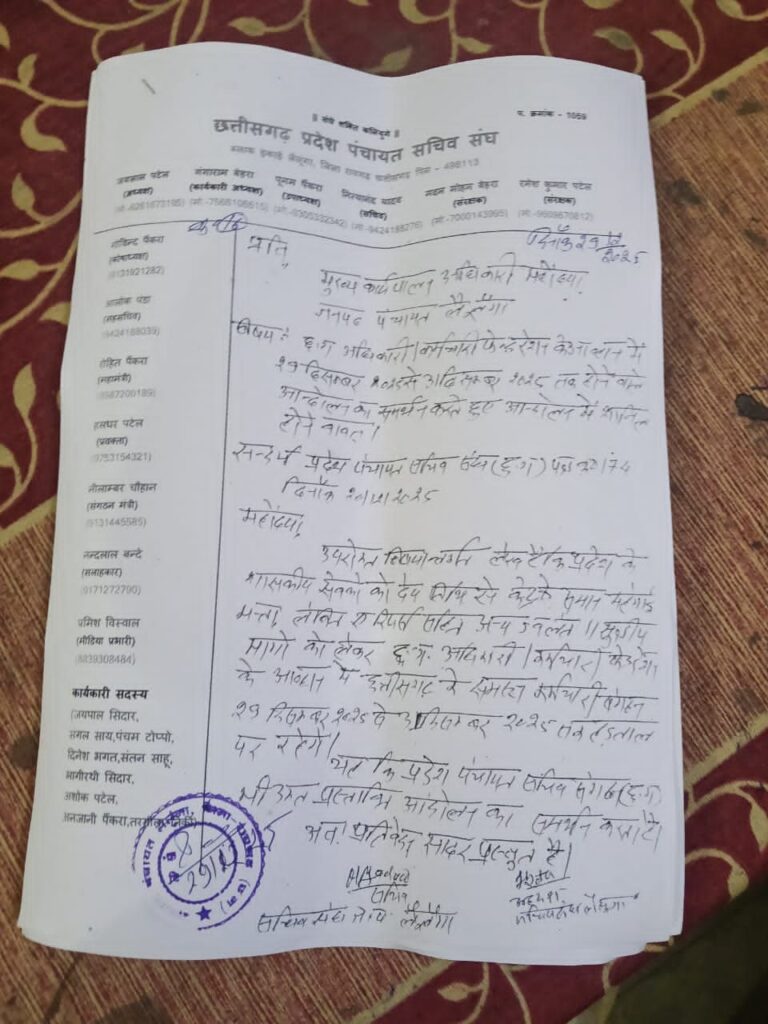 || संघे शक्ति कलियुगे ||
प. क्रमांक - 1059
छत्तीसगढ़ प्रदेश पंचायत सचिव संघ
ब्लाक इकाई लैलूंगा, जिला रायगढ़ छत्तीसगढ़ पिन - 496113
जयपाल पटेल
(अध्यक्ष)
गंगाराम बेहरा
(कार्यकारी अध्यक्ष)
पूनम पैंकरा
(उपाध्यक्ष)
नित्यानंद यादव
(सचिव)
मदन मोहन बेहरा
(संरक्षक)
रमेश कुमार पटेल
(संरक्षक)
दिनाँक 29/12/2025
गोविन्द पैंकरा
(कोषाध्यक्ष)
(9131921282)
आलोक पंडा
(सहसचिव)
(9424188039)
रोहित पैंकरा
(महामंत्री)
हलधर पटेल
(प्रवक्ता)
(9753154321)
नीलाम्बर चौहान
(संगठन मंत्री)
(9131445585)
नन्दलाल बन्दे
(सलाहकार)
(9171272790)
प्रमिश विस्वाल
(मीडिया प्रभारी)
(8839308484)
कार्यकारी सदस्य
जयपाल सिदार,
मंगल साय, पंचम टोप्पो,
दिनेश भगत, संतन साहू,
भागीरथी सिदार,
अशोक पटेल,
अनजानी पैंकरा,
प्रति,
मुख्य कार्यपालन अधिकारी महोदया
जनपद पंचायत लैलूंगा
विषय: छ.ग अधिकारी/कर्मचारी फेडरेशन के आव्हान में
29 दिसम्बर 2025 से 31 दिसम्बर 2025 तक होने वाले
आन्दोलन का समर्थन करते हुए आन्दोलन में शामिल
होने बाबत्।
सन्दर्भ प्रदेश पंचायत सचिव संघ (छ.ग)
दिनाँक
महोदया,
उपरोक्त विषयान्तर्गत लेख है कि प्रदेश के
शासकीय सेवकों को देय तिथि से केन्द्र के समान महंगाई
भत्ता, सहित अन्य ज्वलंत 11 सूत्रीय
मांगो को लेकर छ.ग. अधिकारी/कर्मचारी फेडरेशन
के आव्हान में छत्तीसगढ़ के समस्त कर्मचारी संगठन
29 दिसम्बर 2025 से 31 दिसम्बर 2025 तक हड़ताल
पर रहेंगे।
यह कि प्रदेश पंचायत सचिव संगठन (छ.ग)
भी उक्त प्रस्तावित आंदोलन का समर्थन करता है।
अतः प्रतिवेदन सादर प्रस्तुत है।
सचिव
सचिव संघ लैलूंगा
अध्यक्ष
सचिव संघ लैलूंगा